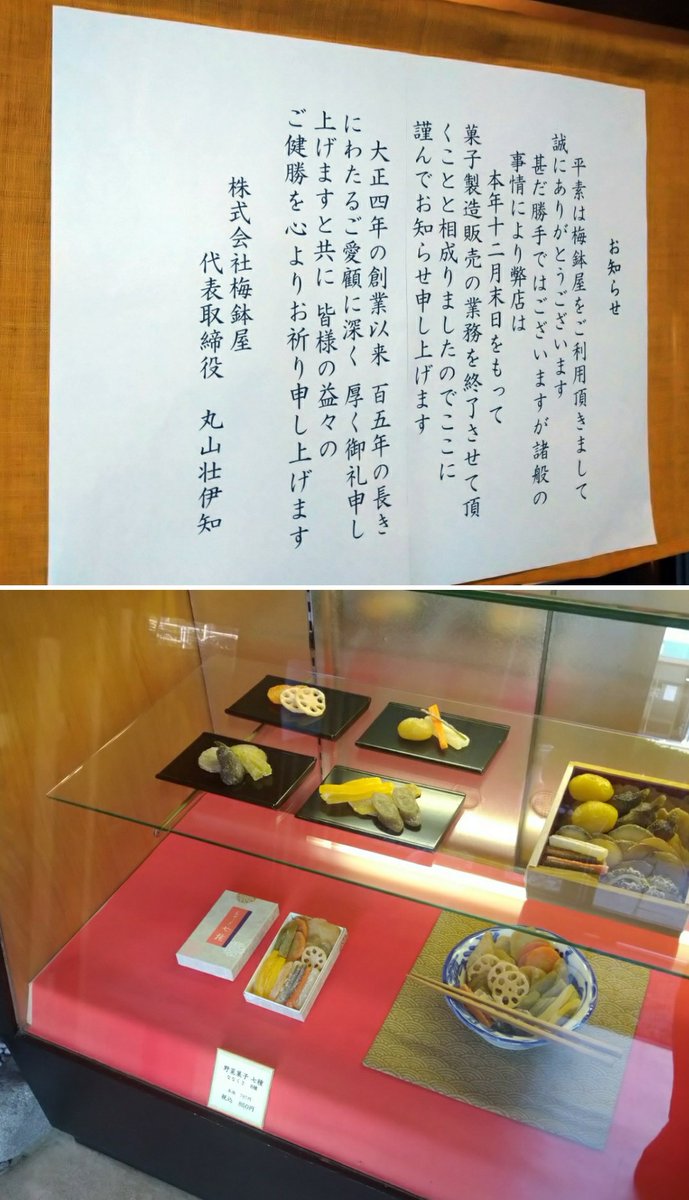 お知らせ
平素は梅鉢屋をご利用頂きまして
誠にありがとうございます
甚だ勝手ではございますが諸般の
事情により弊店は
本年十二月末日をもって
菓子製造販売の業務を終了させて頂
くことと相成りましたのでここに
謹んでお知らせ申し上げます
大正四年の創業以来 百五年の長き
にわたるご愛顧に深く 厚く御礼申し
上げますと共に 皆様の益々の
ご健勝を心よりお祈り申し上げます
株式会社梅鉢屋
代表取締役 丸山壮伊知
七種
野菜菓子 七種
税込 860円